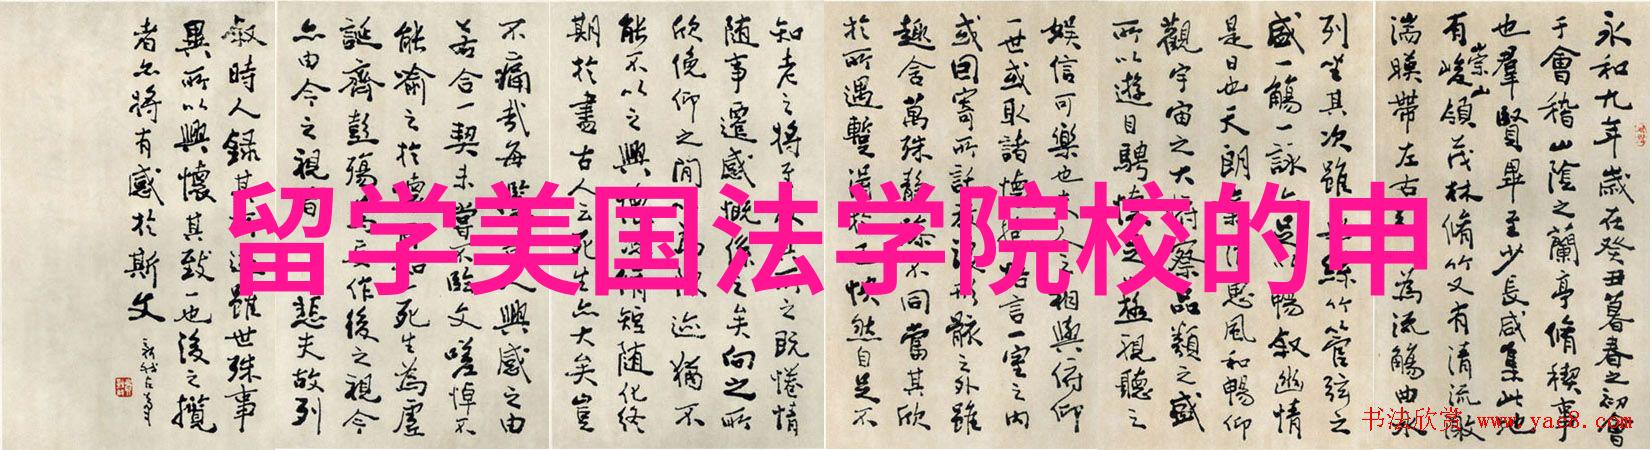 永和九年歲在癸丑暮春之初會
于會稽山陰之蘭亭脩稧事
也羣賢畢至少長咸集此地
有崇山峻領茂林脩竹又有清流激
湍暎帶左右為流觴曲水
列坐其次雖無絲竹管弦之
盛一觴一詠亦足以暢敘幽情
是日也天朗氣清惠風和暢仰
觀宇宙之大俯察品類之盛
所以遊目騁懷足以極視聽之
娛信可樂也夫人之相與俯仰
一世或取諸懷抱悟言一室之內
或因寄所託放浪形骸之外雖
趣舍萬殊靜躁不同當其欣
於所遇暫得於己快然自足不
知老之將至及其所之既惓情
随事遷感慨係之矣向之所
欣俛仰之閒以為陳迹猶不
能不以之興懷況脩短随化終
期於盡古人云死生亦大矣豈
不痛哉每攬昔人興感之由
若合一契未嘗不臨文嗟悼不
能喻之於懷固知一死生為虛
誕齊彭殤為妄作後之視今
亦由今之視昔悲夫故列
敘時人錄其所述雖世殊事
異所以興懷其致一也後之攬
者亦將有感於斯文
留学美国法学院校的申
书法欣赏 www.yac8.com